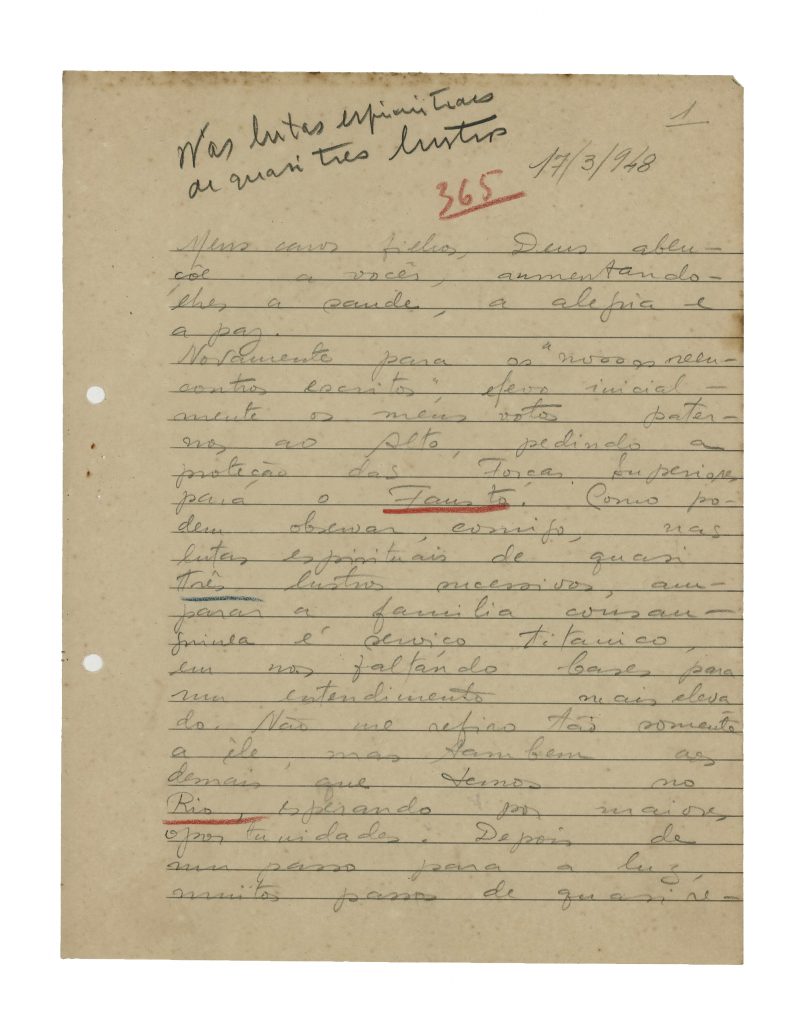 Nas lutas espirituais
de quasi tres lustros
1
17/3/948
365
Meus caros filhos, Deus aben-
çôe a vocês, aumentando-
lhes a saude, a alegria e
a paz.
Novamente para os "nossos reen-
contros escritos", elevo inicial-
mente os meus votos pater-
nos ao Alto, pedindo a
proteção das Forças Superiores
para o Fausto. Como po-
dem observar, comigo, nas
lutas espirituais de quasi
três lustros sucessivos, am-
parar a familia consan-
guinea é serviço titanico,
em nos faltando bases para
um entendimento mais eleva
do. Não me refiro tão somente
a êle, mas tambem aos
demais que temos no
Rio, esperando por maiores
oportunidades. Depois de
um passo para a luz,
muitos passos de quasi re-